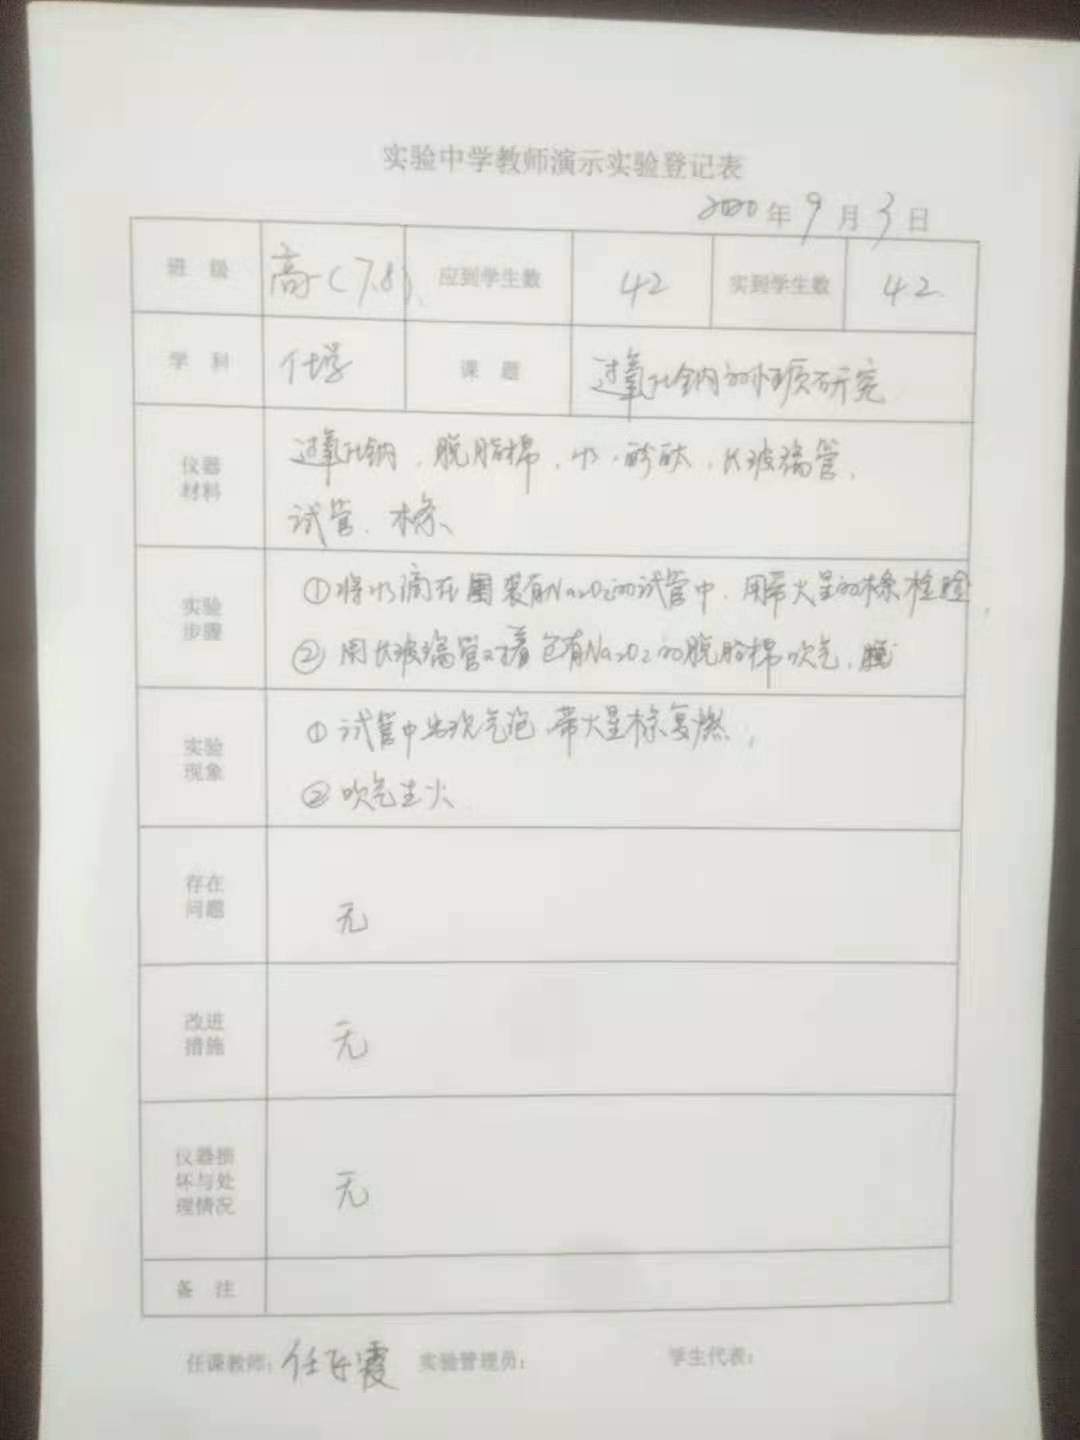 实验中学教师演示实验登记表
2020年9月3日
班 级 高一(7.8). 应到学生数 42 实到学生数 42
学 科 化学 课 题 过氧化钠的性质研究
仪器材料 过氧化钠、脱脂棉、水、酚酞、长玻璃管、
试管、木条、
实验步骤 ①将水滴在装有Na2O2的试管中,用带火星的木条检验,
②用长玻璃管对着包有Na2O2的脱脂棉吹气,
实验现象 ①试管中出现气泡,带火星木条复燃,
②吹气生火
存在问题 无
改进措施 无
仪器损坏与处理情况 无
备 注
任课教师:任 霞 实验管理员: 学生代表: